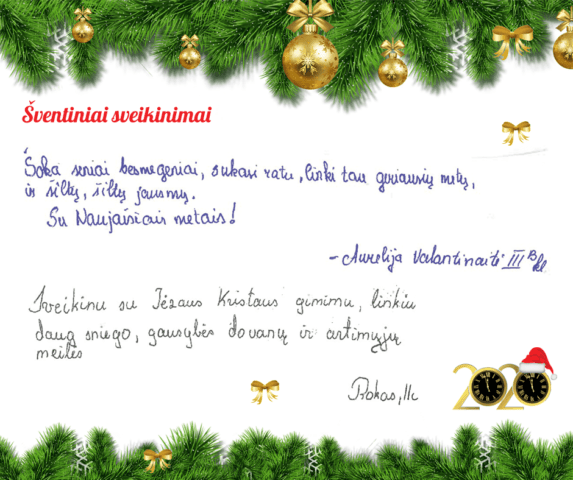 Šventiniai sveikinimai
Šoka seniai besmegeniai, sukasi ratu, linki tau geriausių metų,
ir šiltų, šiltų jausmų.
Su Naujaisiais metais!
- Aurelija Valantinaitė III B kl
Sveikinu su Jėzaus Kristaus gimimu, linkiu
daug sniego, gausybės dovanų ir artimųjų
meilės
Rokas, IIc
2020